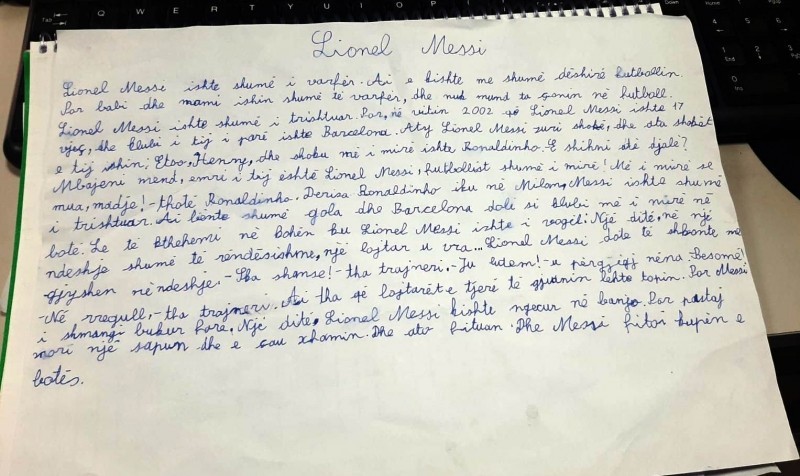 Lionel Messi
Lionel Messi ishte shumë i varfër. Ai e kishte me shumë dëshirë futbollin.
Por babi dhe mami ishin shumë të varfër, dhe nuk mund ta çonin në futboll.
Lionel Messi ishte shumë i trishtuar. Por, në vitin 2002 që Lionel Messi ishte 17
vjeç, dhe klubi i tij i parë ishte Barcelona. Aty Lionel Messi zuri shokë, dhe ata shokët
e tij ishin; Etoo, Henny, dhe shoku më i mirë ishte Ronaldinho. E shikni atë djalë?
Mbajeni mend, emri i tij është Lionel Messi, futbollist shumë i mirë! Më i mirë se
mua, madje! - thotë Ronaldinho. Derisa Ronaldinho iku në Milan, Messi ishte shumë
i trishtuar. Ai bënte shumë gola dhe Barcelona doli si klubi më i mirë në
botë. Le të kthehemi në kohën ku Lionel Messi ishte i vogël: Një ditë, në një
ndeshje shumë të rëndësishme, një lojtar u vra... Lionel Messi donte të shkonte me
gjyshen në ndeshje. - Ska shanse! - tha trajneri. - Ju lutem! - u përgjigj nëna. - Besomë!
- Në rregull, - tha trajneri. Ai tha që lojtarët e tjerë të gjuanin lehtë topin. Por Messi
i shmangi bukur fare. Një ditë, Lionel Messi kishte ngecur në banjo. Por pastaj
mori një sapun dhe e çau xhamin. Dhe ato fituan. Dhe Messi fitoi kupën e
botës.